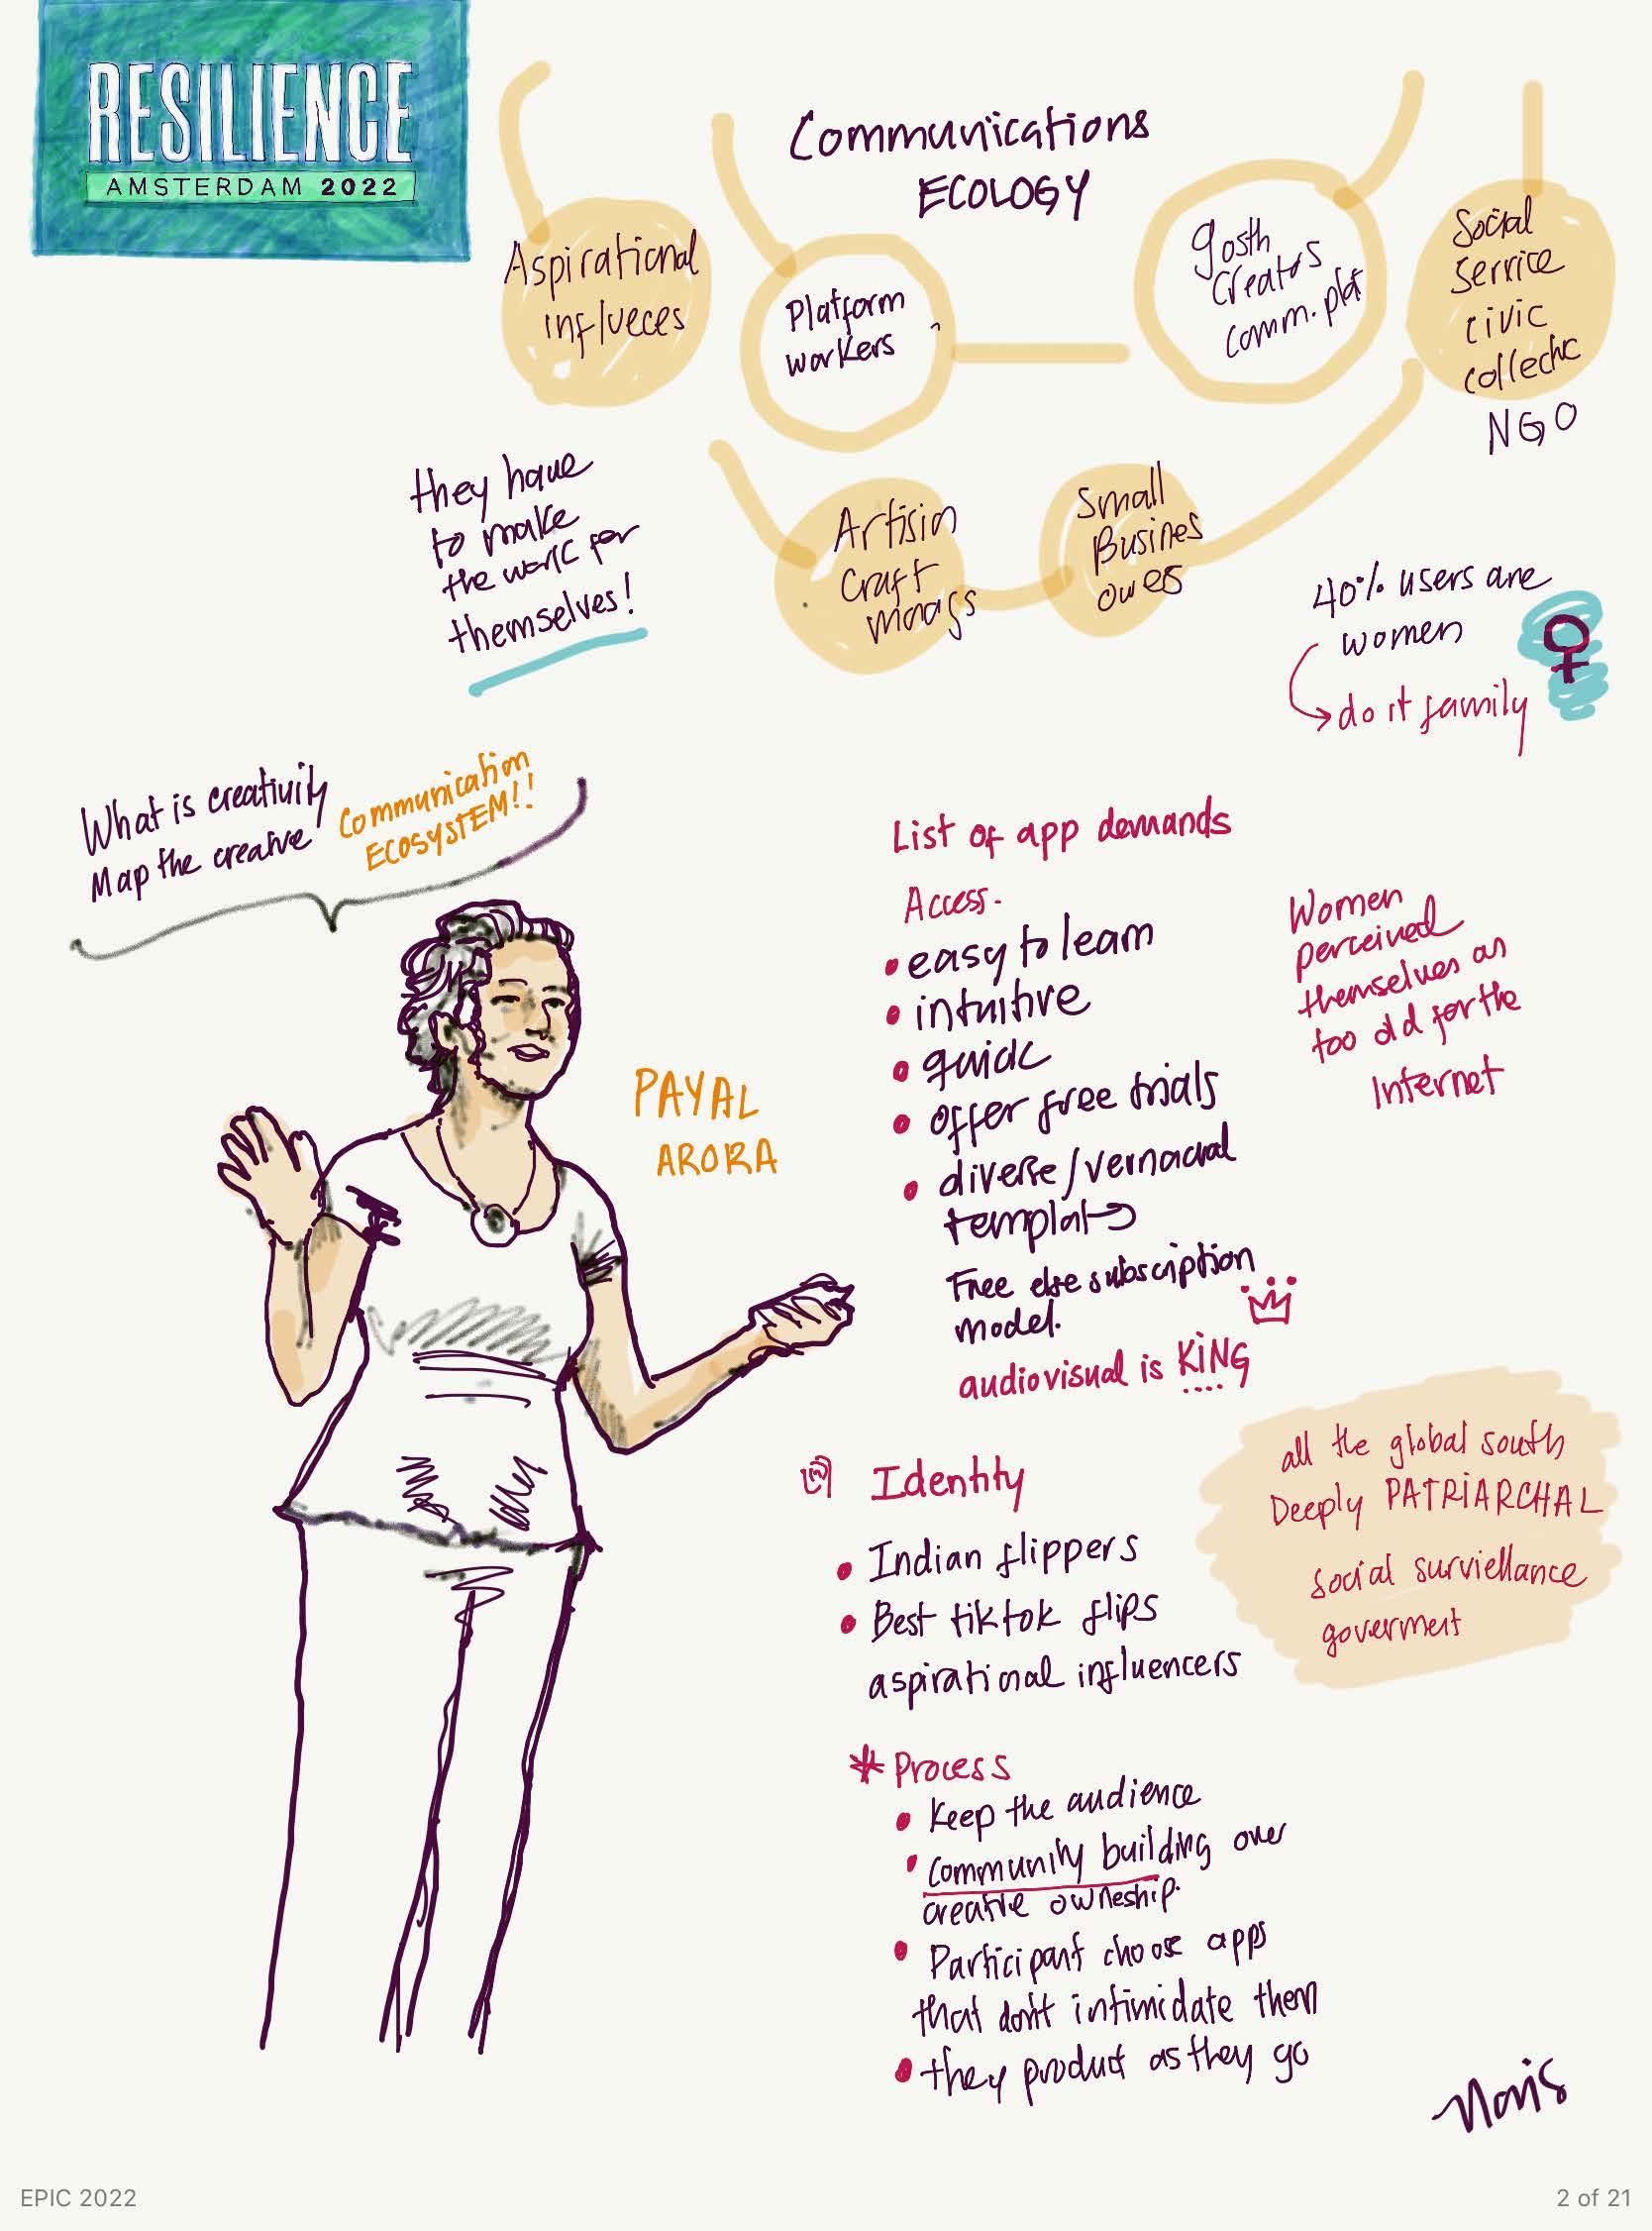 RESILIENCE
AMSTERDAM 2022
Communications
ECOLOGY
Aspirational
influeces
Platform
workers
gosth
creators
comm. plat
Social
Service
civic
collectic
NGO
they have
to make
the work for
themselves!
Artisin
Craft
Small
Busines
owers
40% users are
women
do it family
What is creativity
Map the creative
Communication
ECOSYSTEM!!
PAYAL
ARORA
List of app demands
Access.
• easy to learn
• intuitive
• quick
• offer free trials
• diverse/vernacural
templat
Free else subscription
model.
audiovisual is KING
Women
perceived
themselves as
too old for the
Internet
Identity
• Indian flippers
• Best tiktok flips
aspirational influencers
all the global south
Deeply PATRIARCHAL
social surviellance
goverment
* Process
• Keep the audience
• community building over
creative owneship.
• Participant choose apps
that don't intimidate them
• they product as they go
EPIC 2022
2 of 21